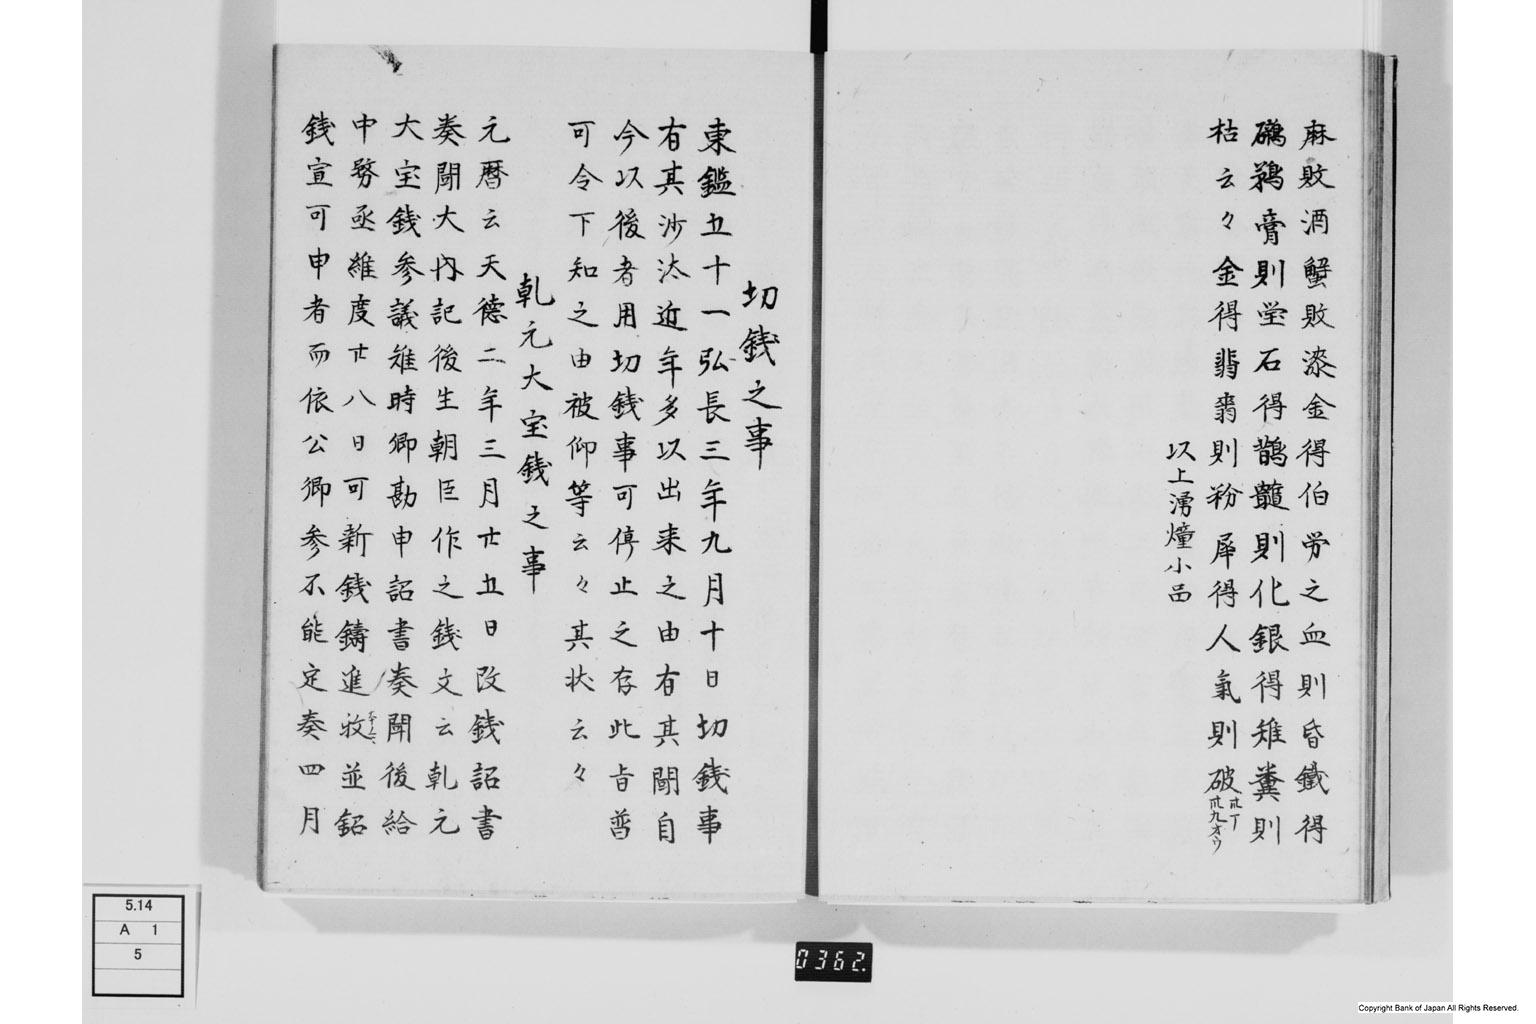 麻敗酒蟹敗漆金得伯労之血則昏鐵得
鵜膏則瑩石得鵲髓則化銀得雉糞則
枯云々金得翡翠則粉犀得人氣則破
以上湧幢小品
切銭之事
東鑑五十一弘長三年九月十日切銭事
有其沙汰近年多以出来之由有其聞自
今以後者用切銭事可停止之存此旨普
可令下知之由被仰等云々其状云々
乹元大宝銭之事
元暦云天徳二年三月廿五日改銭詔書
奏聞大内記後生朝臣作之銭文云乹元
大宝銭参議雉時卿勘申詔書奏聞後給
中務丞維度廿八日可新銭鑄進並銘
銭宣可申者而依公卿参不能定奏四月
5.14
A 1
5
0362.
Copyright Bank of Japan All Rights Reserved.